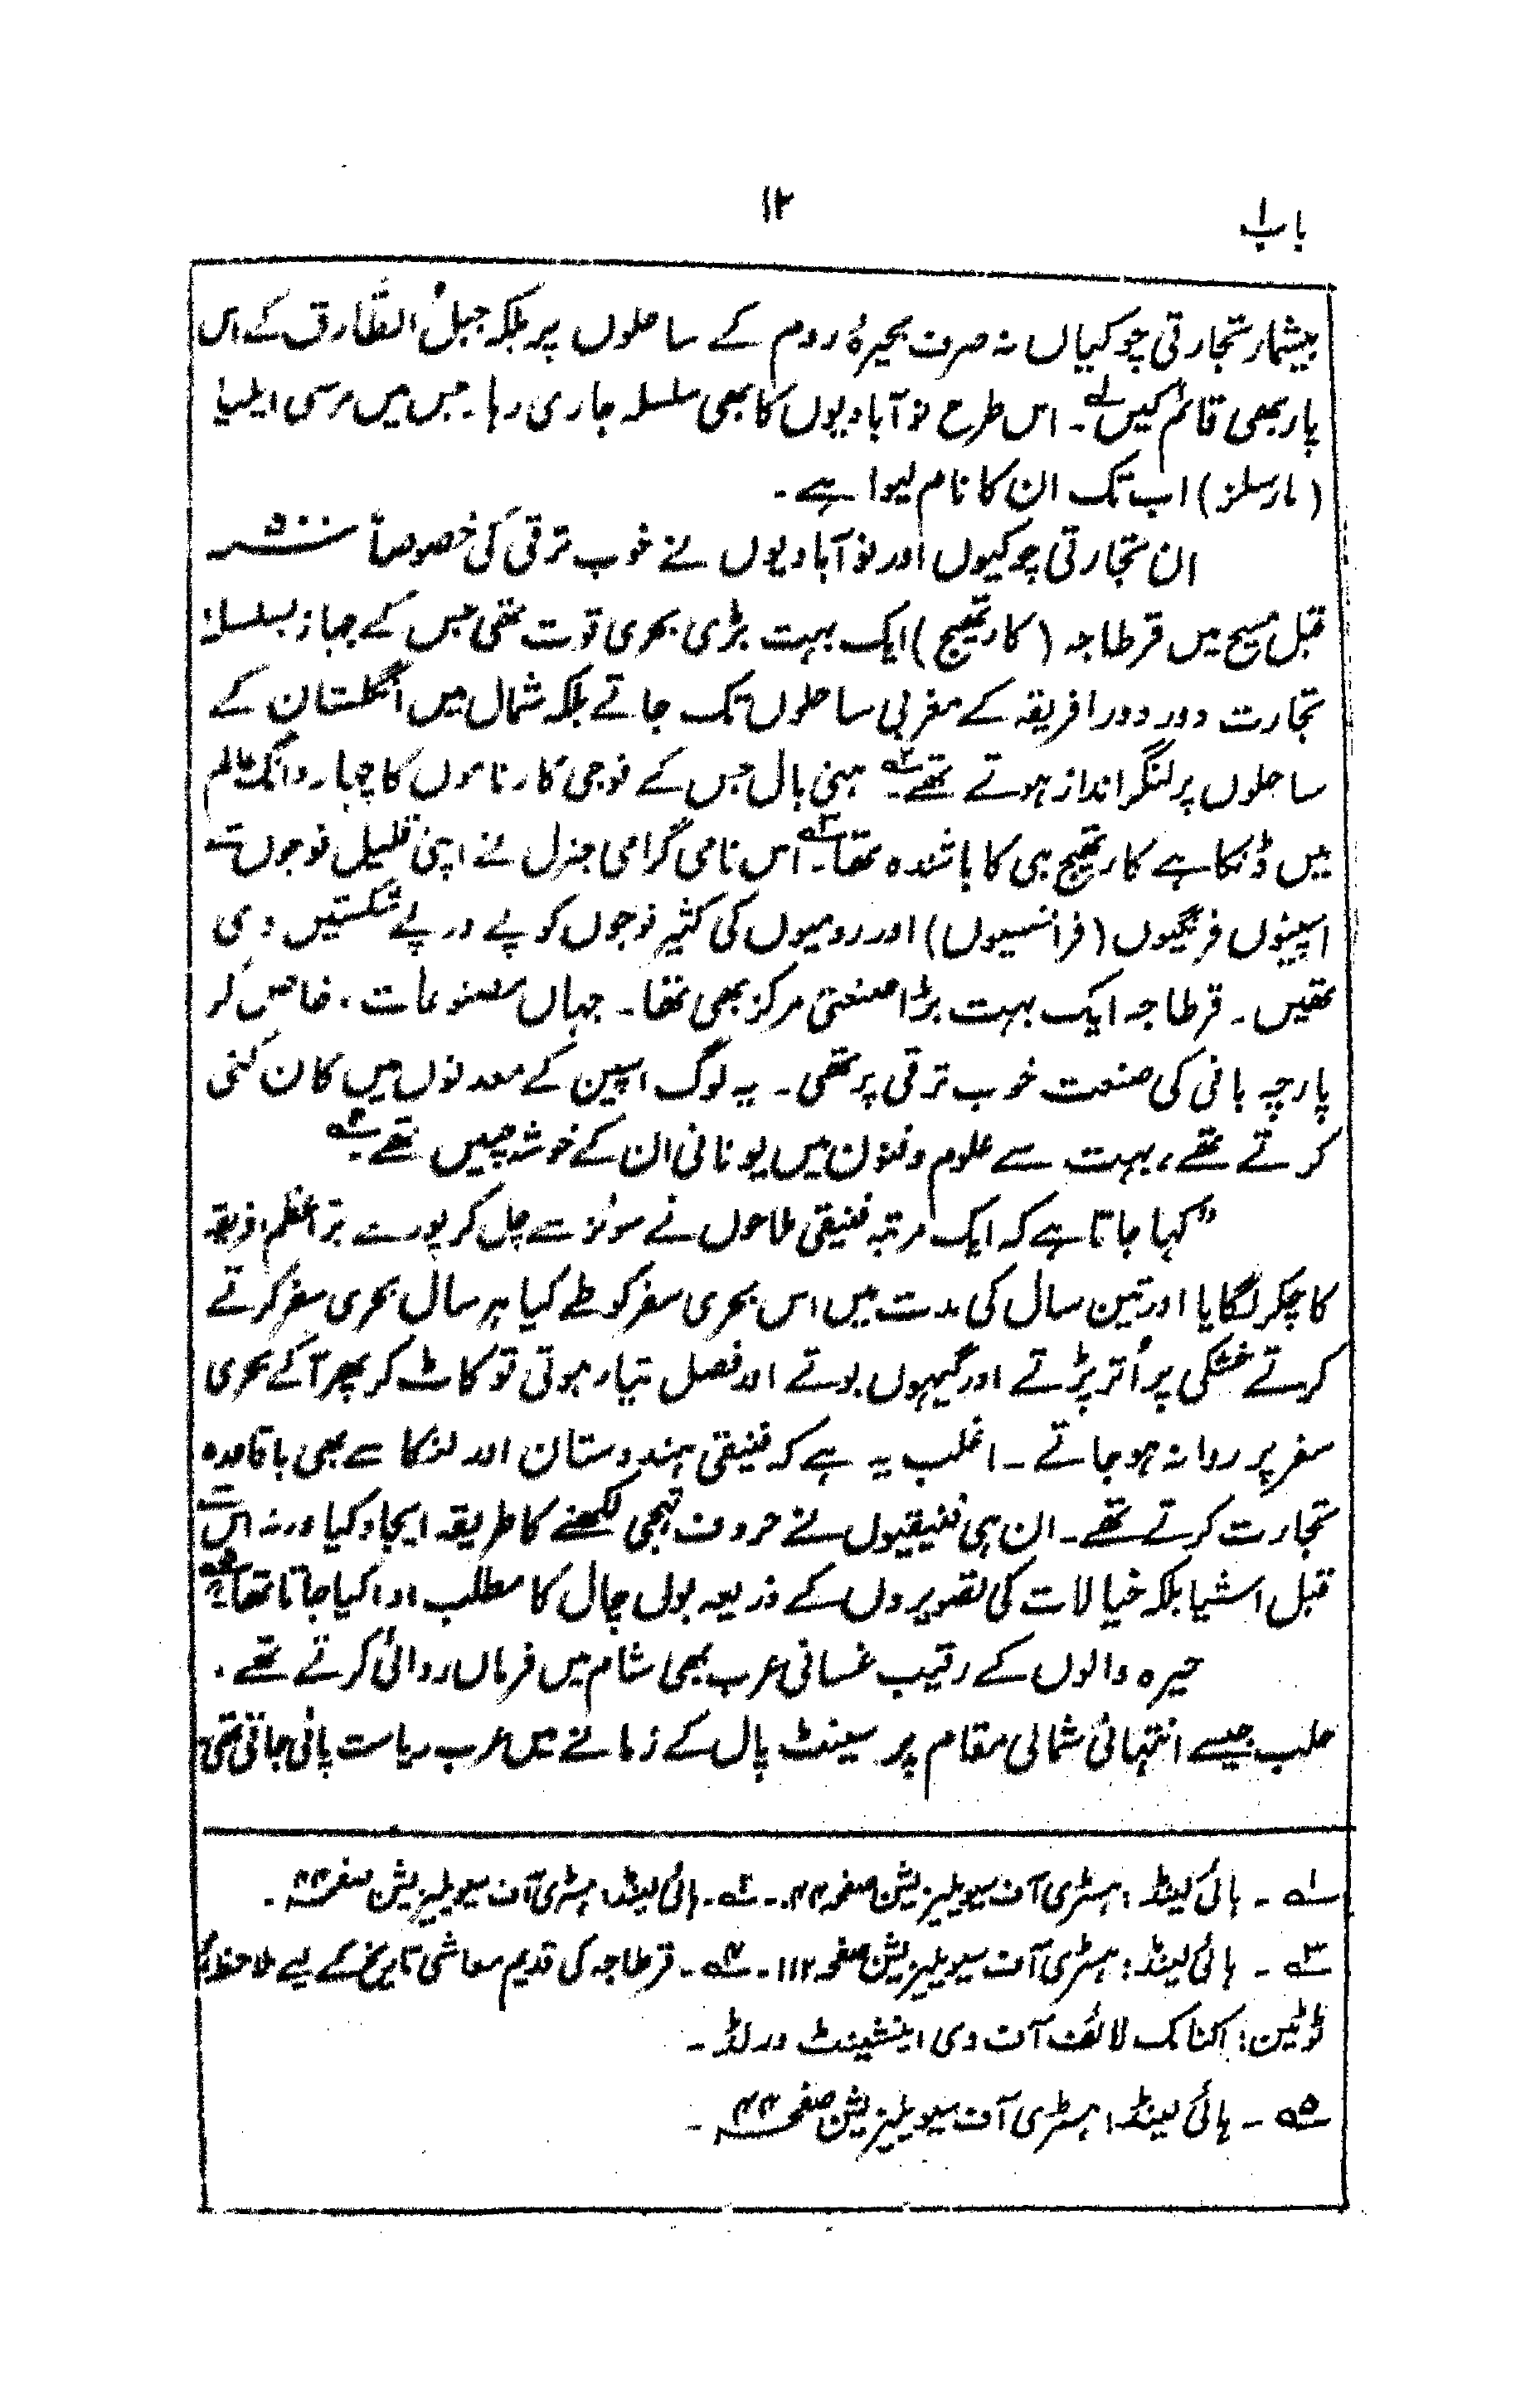 باب ۱
۱۲
بیشمار تجارتی چوکیاں نہ صرف بحیرۂ روم کے ساحلوں پر بلکہ جبلُ الطّارق کے اس
پار بھی قائم کیں۱؎۔ اس طرح نوآبادیوں کا بھی سلسلہ جاری رہا۔ جس میں مرسی ایلیا
(مارسلز) اب تک ان کا نام لیوا ہے۔
ان تجارتی چوکیوں اور نوآبادیوں نے خوب ترقی کی خصوصاً ۵۰۰؁
قبل مسیح میں قرطاجہ (کارتھیج) ایک بہت بڑی بحری قوت تھی جس کے جہاز بسلسلۂ
تجارت دور دور افریقہ کے مغربی ساحلوں تک جاتے بلکہ شمال میں انگلستان کے
ساحلوں پر لنگر انداز ہوتے تھے۲؎۔ ہینی بال جس کے فوجی کارناموں کا چہار دانگ عالم
میں ڈنکا ہے کارتھیج ہی کا باشندہ تھا۳؎۔ اس نامی گرامی جنرل نے اپنی قلیل فوجوں سے
اسپینوں فرنگیوں (فرانسیسوں) اور رومیوں کی کثیر فوجوں کو پے در پے شکستیں دی
تھیں۔ قرطاجہ ایک بہت بڑا صنعتی مرکز بھی تھا۔ جہاں مصنوعات، خاص کر
پارچہ بافی کی صنعت خوب ترقی پر تھی۔ یہ لوگ اسپین کے معدنوں میں کان کنی
کرتے تھے، بہت سے علوم و فنون میں یونانی ان کے خوشہ چیں تھے۴؎۔
"کہا جاتا ہے کہ ایک مرتبہ فنیقی ملاحوں نے سوئز سے چل کر پورے برّاعظم افریقہ
کا چکر لگایا اور تین سال کی مدت میں اس بحری سفر کو طے کیا ہر سال بحری سفر کرتے
کرتے خشکی پر اُتر پڑتے اور گیہوں بوتے اور فصل تیار ہوتی تو کاٹ کر پھر آگے بحری
سفر پر روانہ ہو جاتے۔ اغلب یہ ہے کہ فنیقی ہندوستان اور لنکا سے بھی باقاعدہ
تجارت کرتے تھے۔ ان ہی فنیقیوں نے حروف تہجی لکھنے کا طریقہ ایجاد کیا ورنہ اس سے
قبل اشیا بلکہ خیالات کی تصویروں کے ذریعہ بول چال کا مطلب ادا کیا جاتا تھا۵؎"
حیرہ والوں کے رقیب غسانی عرب بھی شام میں فرماں روائی کرتے تھے۔
حلب جیسے انتہائی شمالی مقام پر سینٹ پال کے زمانے میں عرب ریاست پائی جاتی تھی
۱؎۔ ہائی لینڈ: ہسٹری آف سیویلیزیشن صفحہ ۴۴۔ ۲؎۔ ہائی لینڈ: ہسٹری آف سیویلیزیشن صفحہ ۴۴۔
۳؎۔ ہائی لینڈ: ہسٹری آف سیویلیزیشن صفحہ ۱۱۲۔ ۴؎۔ قرطاجہ کی قدیم معاشی تاریخ کے لیے ملاحظہ ہو
ٹوٹین: اکنامک لائف آف دی اینشینٹ ورلڈ۔
۵؎۔ ہائی لینڈ: ہسٹری آف سیویلیزیشن صفحہ ۴۴۔